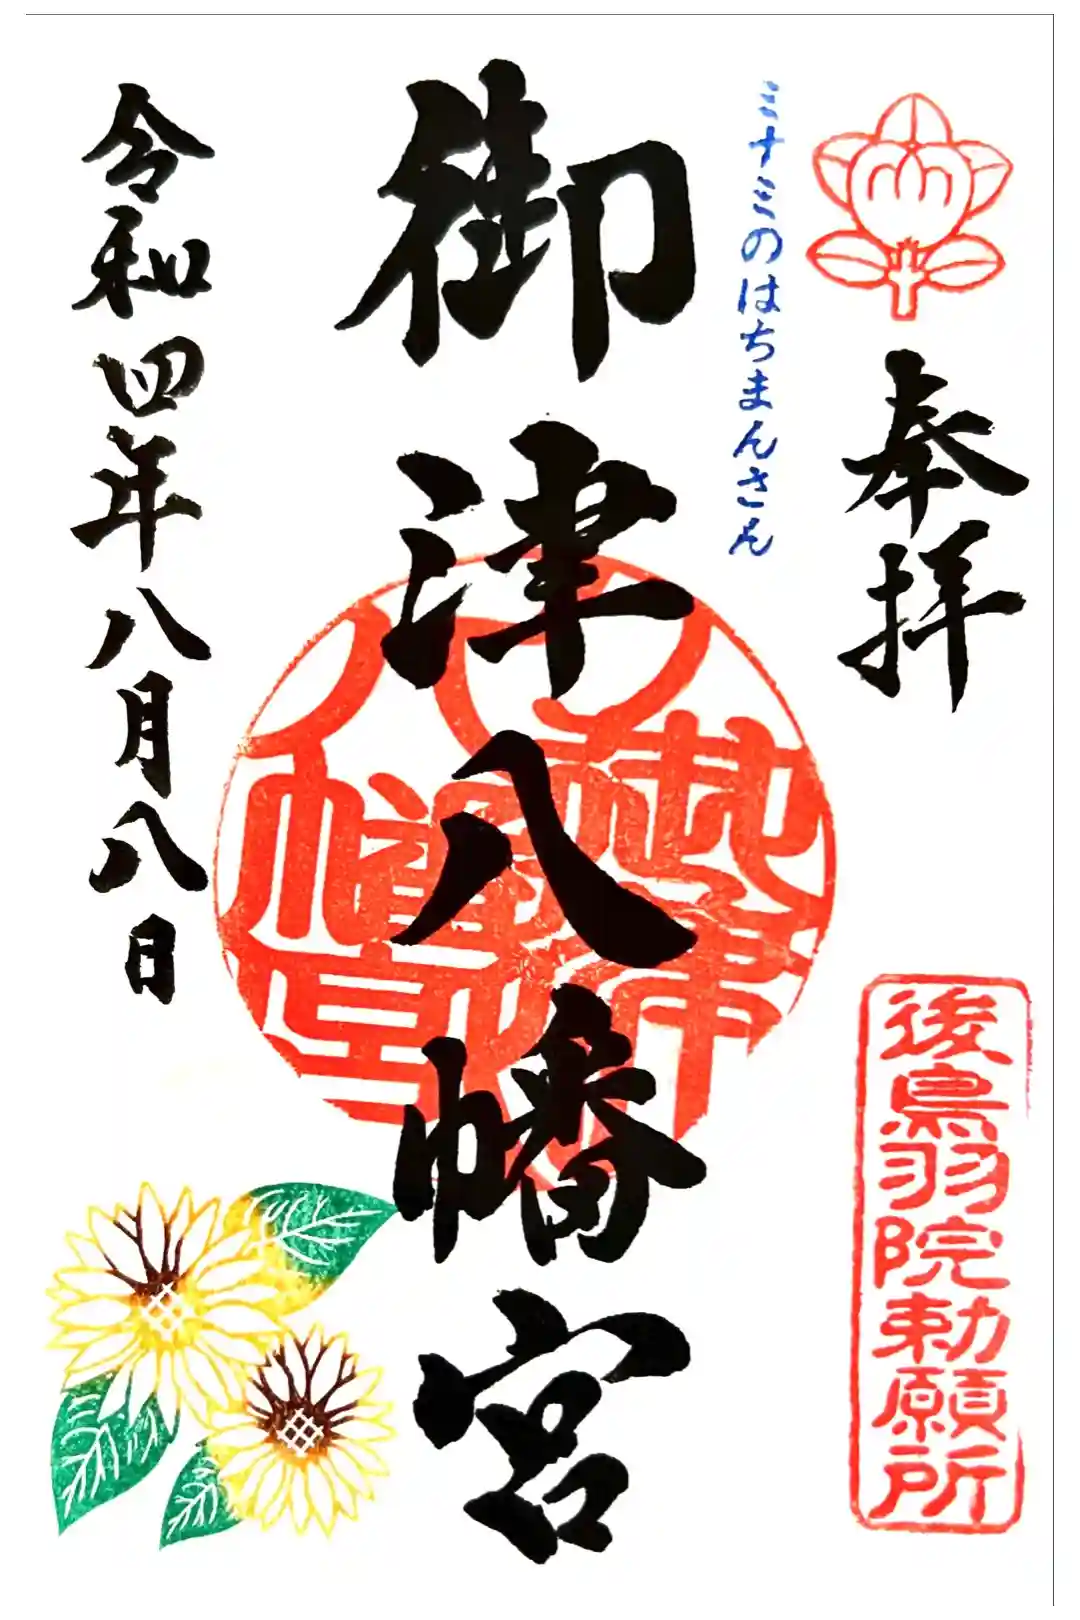 奉拝
ミナミのはちまんさん
御津八幡宮
御津八幡宮
令和四年八月八日
後鳥羽院勅願所